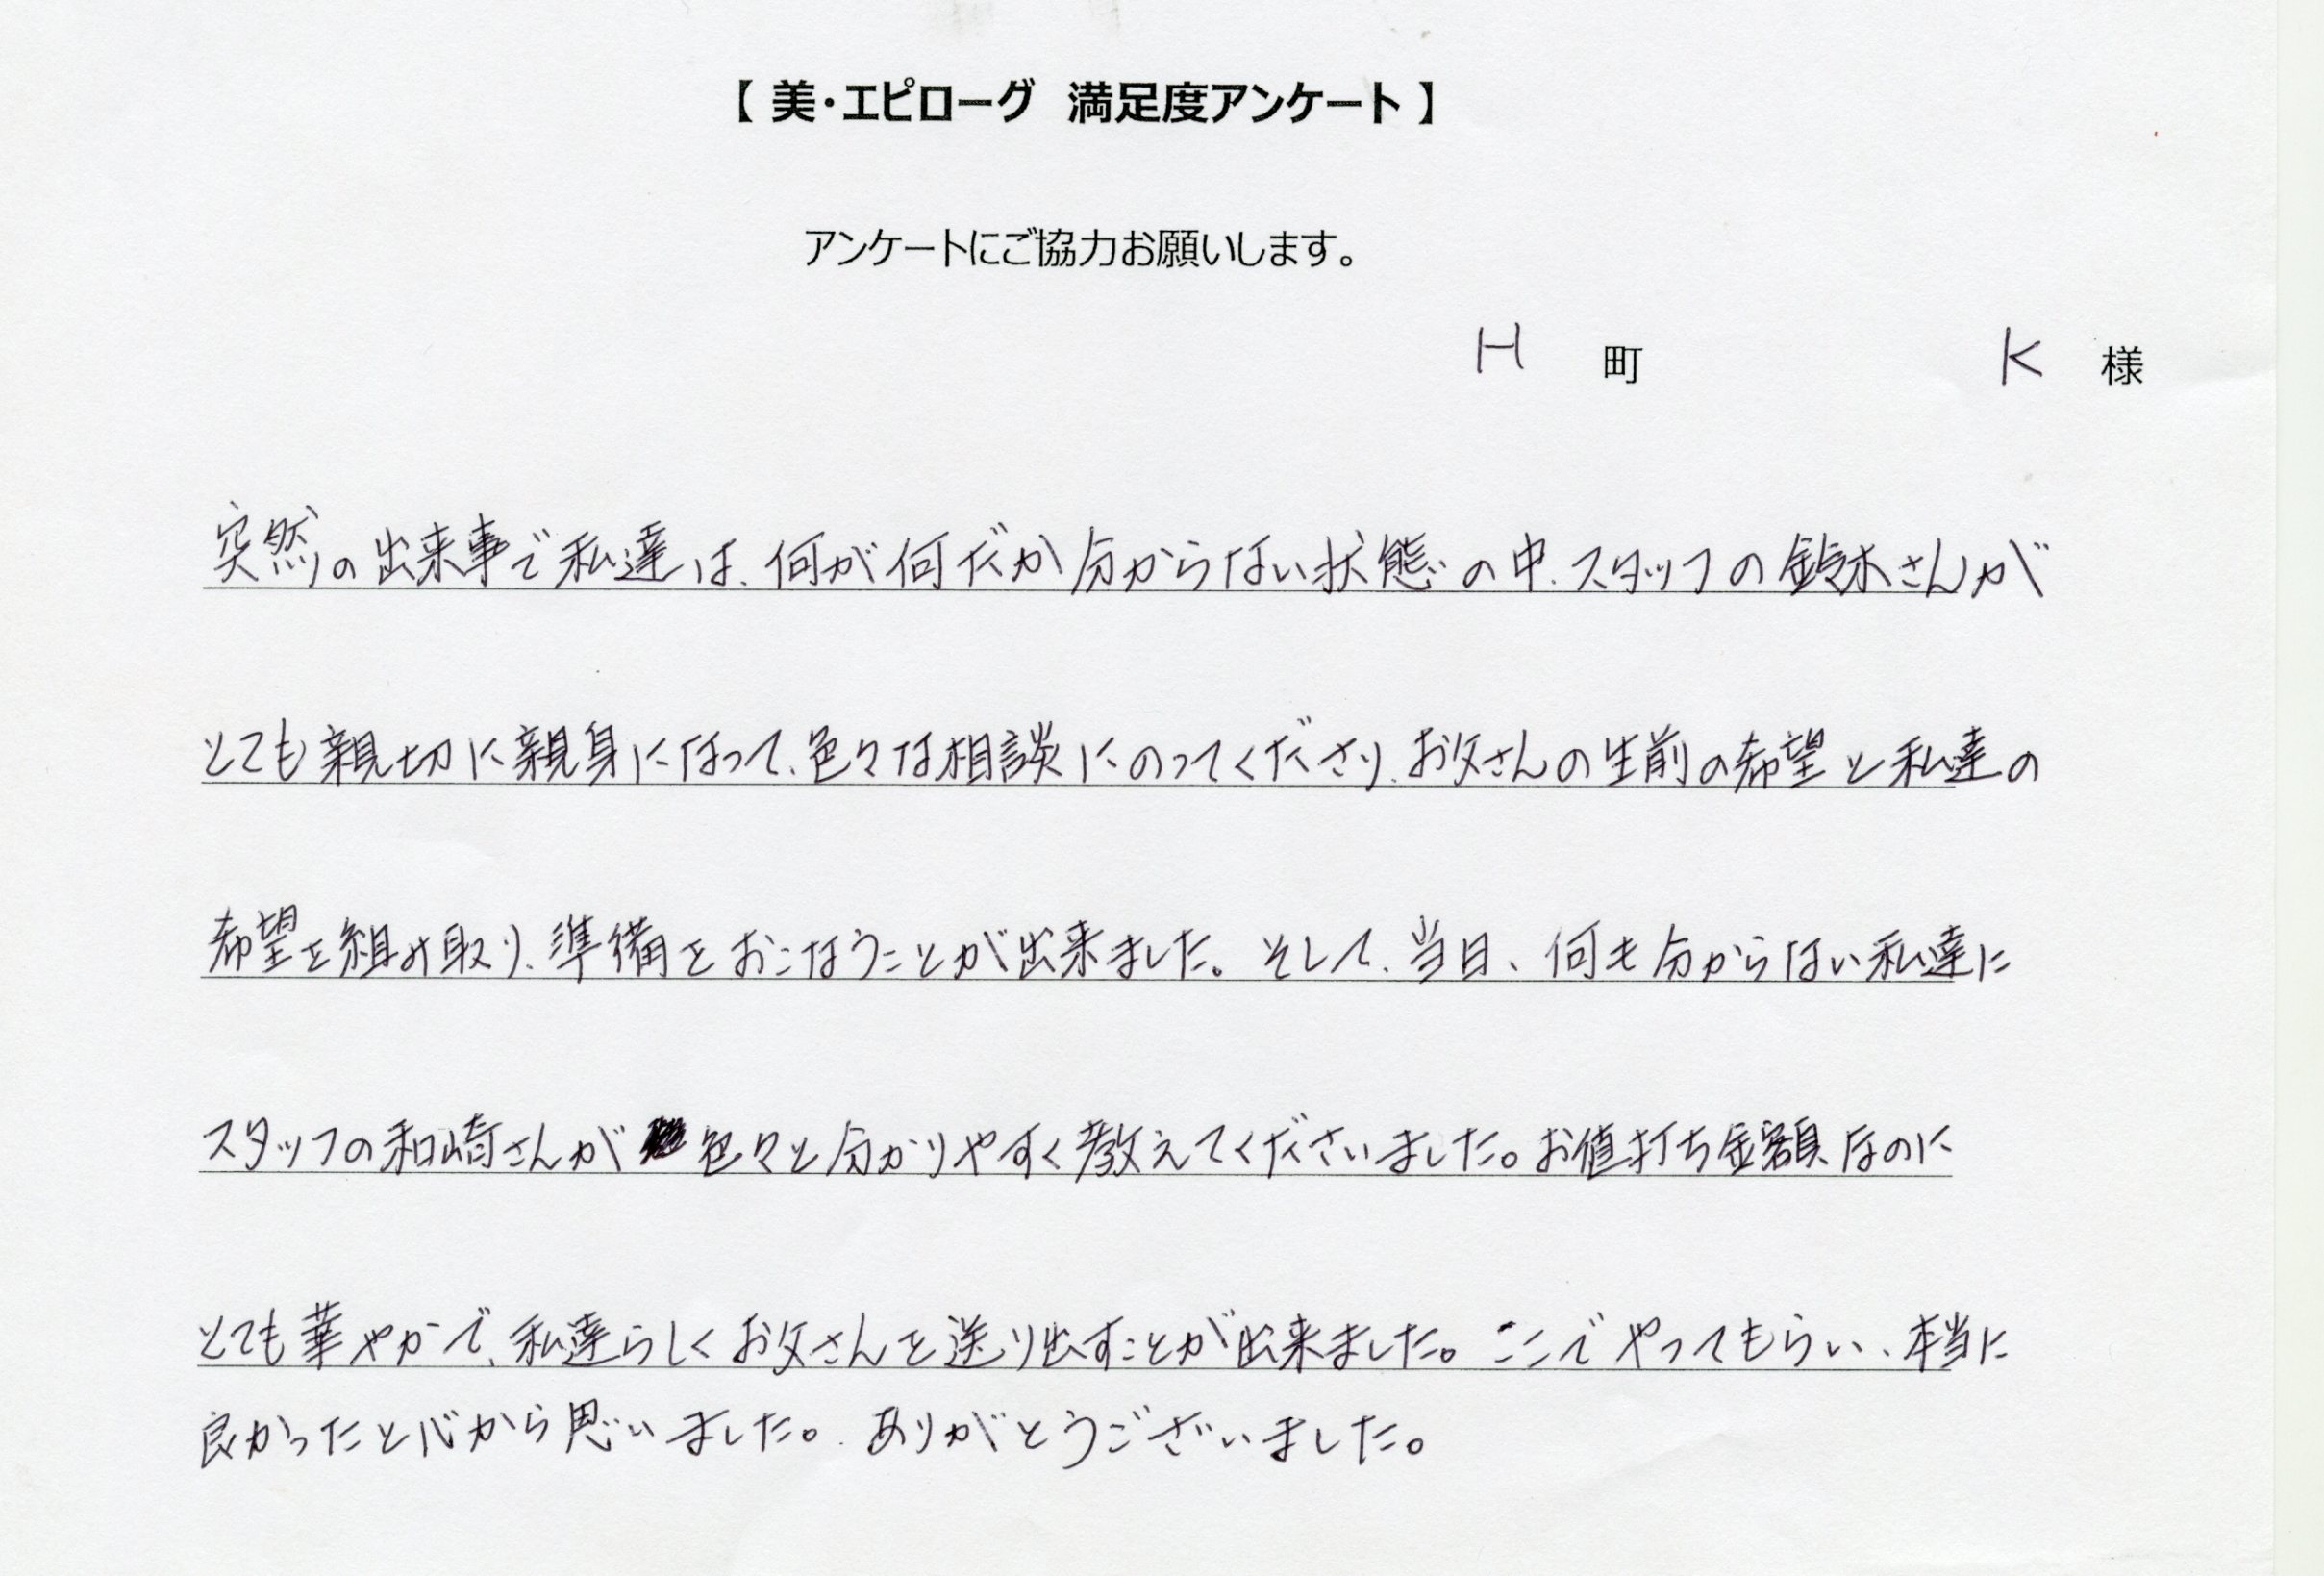 【 美・エピローグ　満足度アンケート 】
アンケートにご協力お願いします。
H 町　K 様
突然の出来事で私達は、何が何だか分からない状態の中、スタッフの鈴木さんが
とても親切に親身になって、色々な相談にのってくださり、お父さんの生前の希望と私達の
希望を組み取り、準備をおこなうことが出来ました。そして、当日、何も分からない私達に
スタッフの和崎さんが 色々と分かりやすく教えてくださいました。お値打ち金額なのに
とても華やかで、私達らしくお父さんを送り出すことが出来ました。ここでやってもらい、本当に
良かったと心から思いました。ありがとうございました。